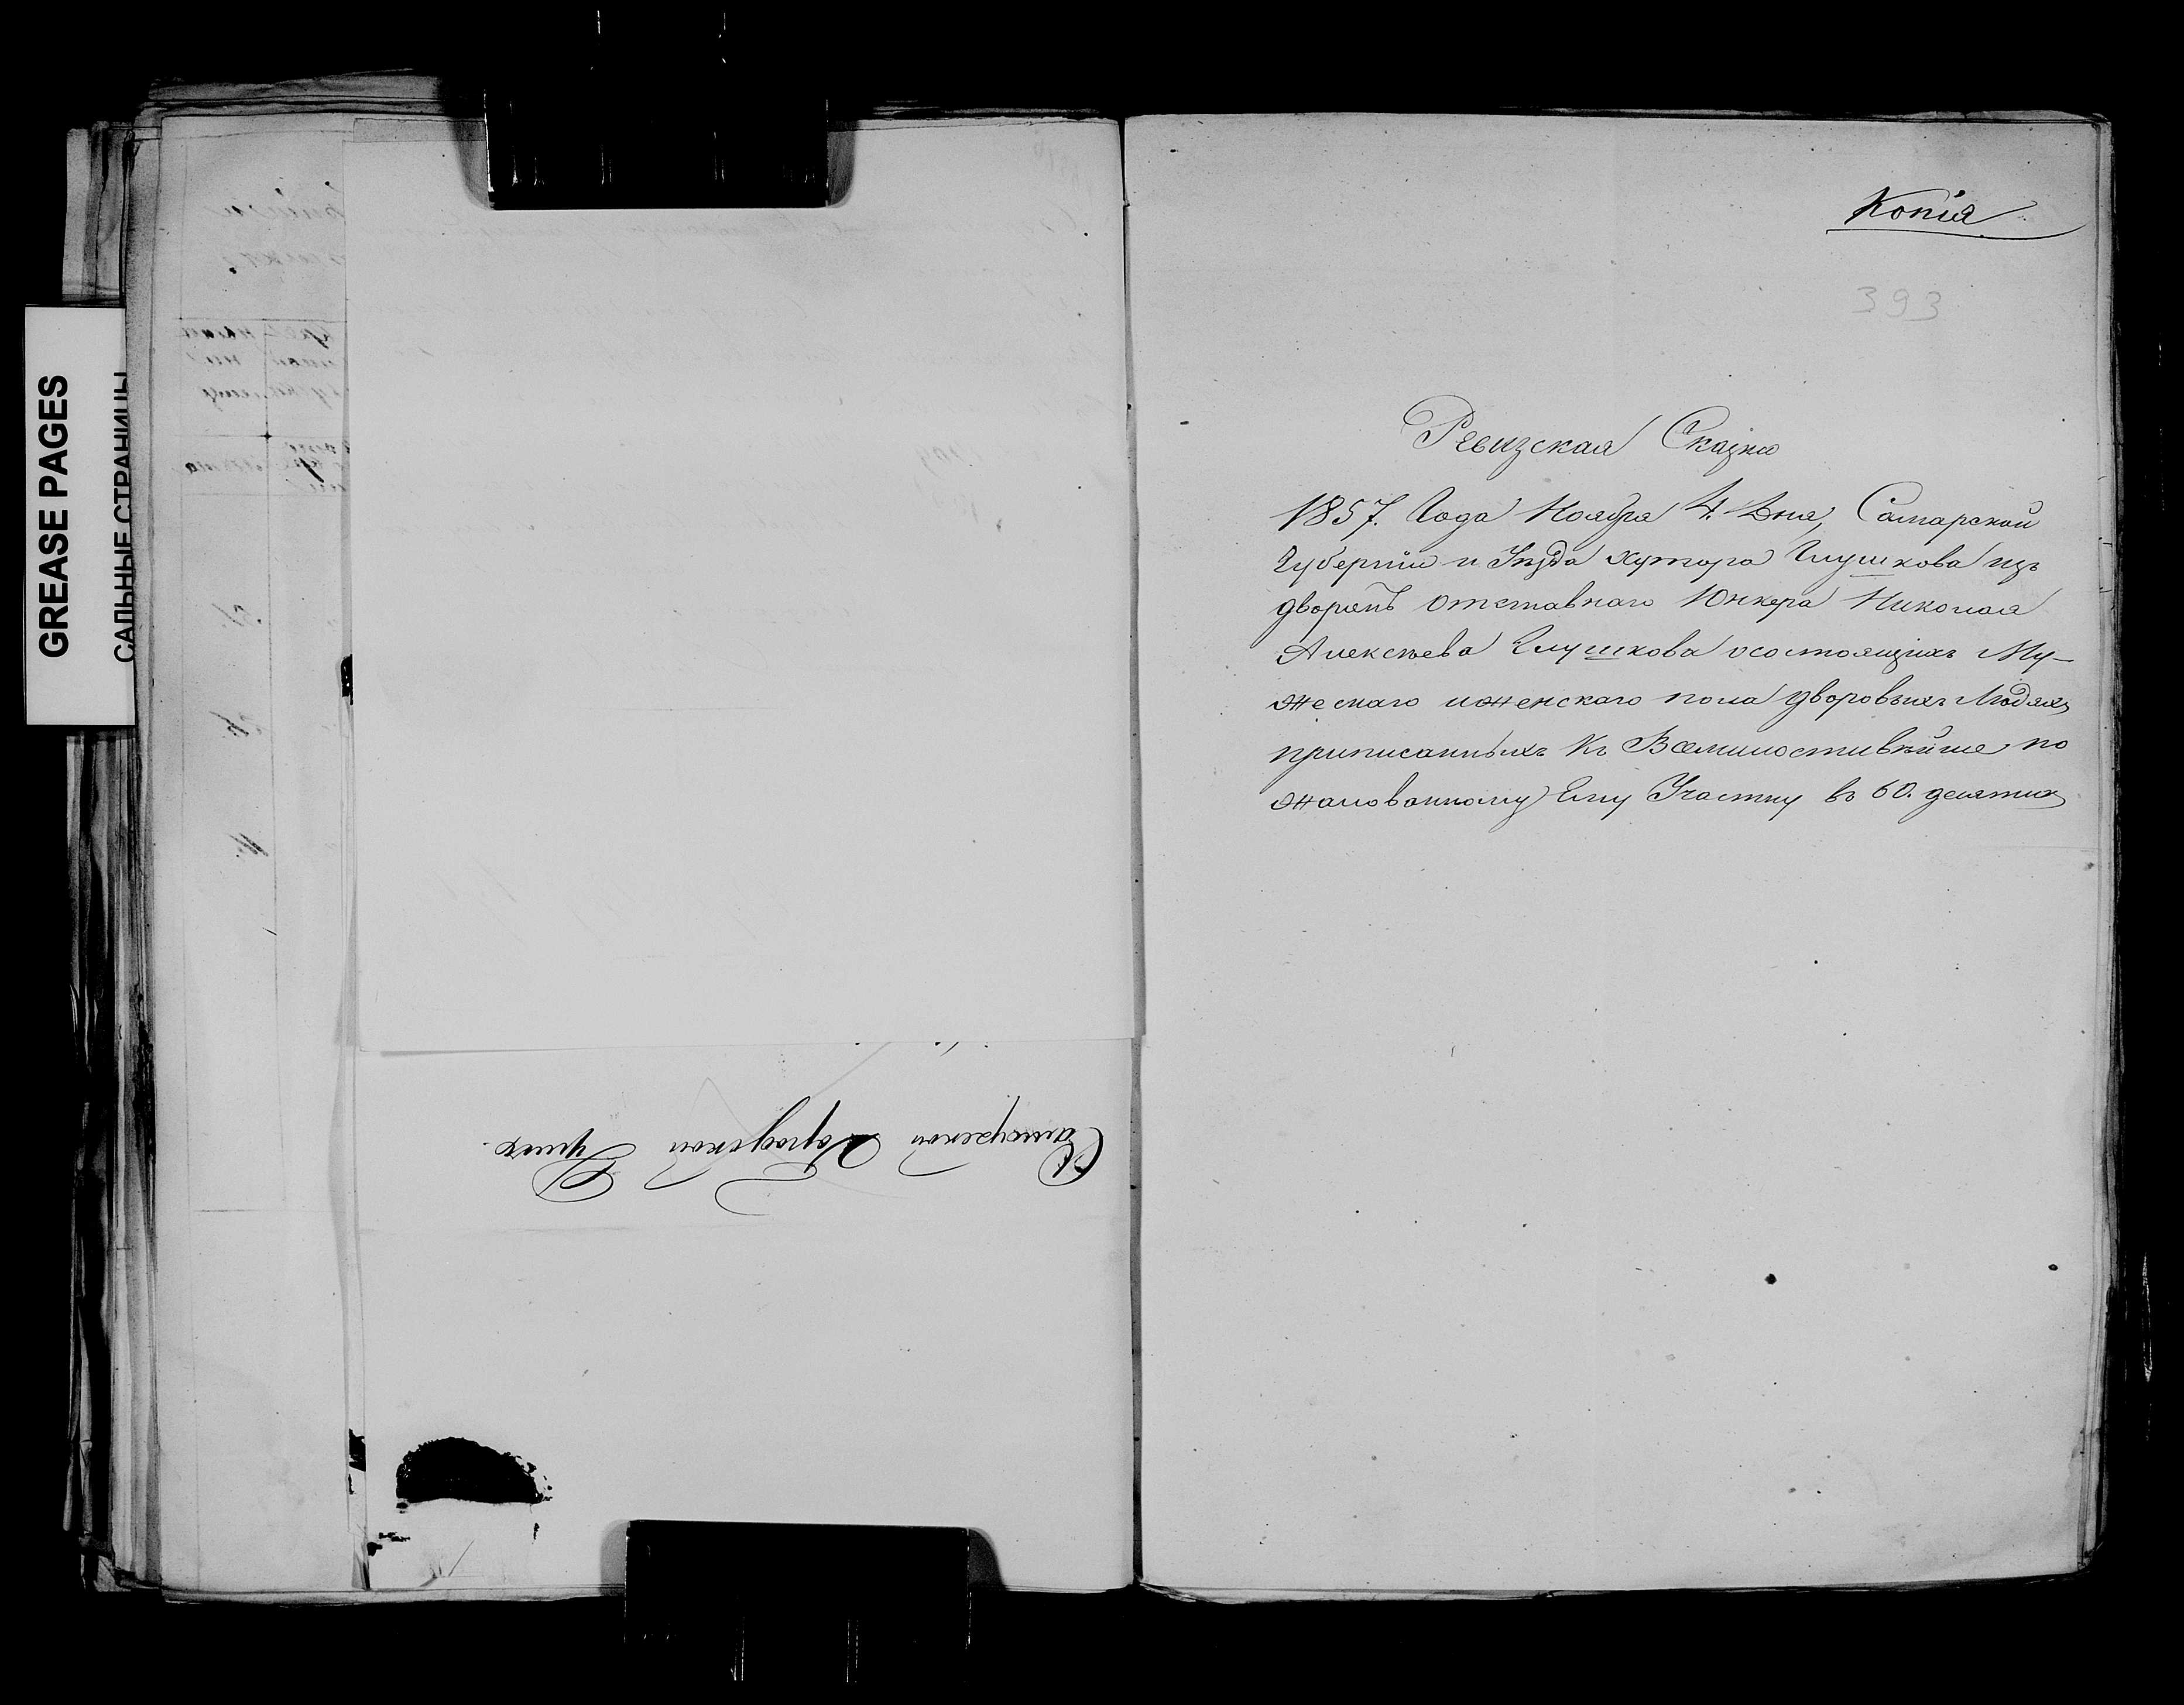 GREASE PAGES
САЛЬНЫЕ СТРАНИЦЫ
Самарской Городской Думы.
Копія
393
Ревизская Сказка
1857. Года Ноября 4. Дня, Самарской
Губерніи и Уѣзда хутора Глушкова изъ
дворянъ отставнаго Юнкера Николая
Алексѣева Глушкова о состоящихъ Му-
жескаго и женскаго пола дворовыхъ Людяхъ
приписанныхъ къ Всемилостивѣйше по
жалованному Ему Участку въ 60. десятинъ